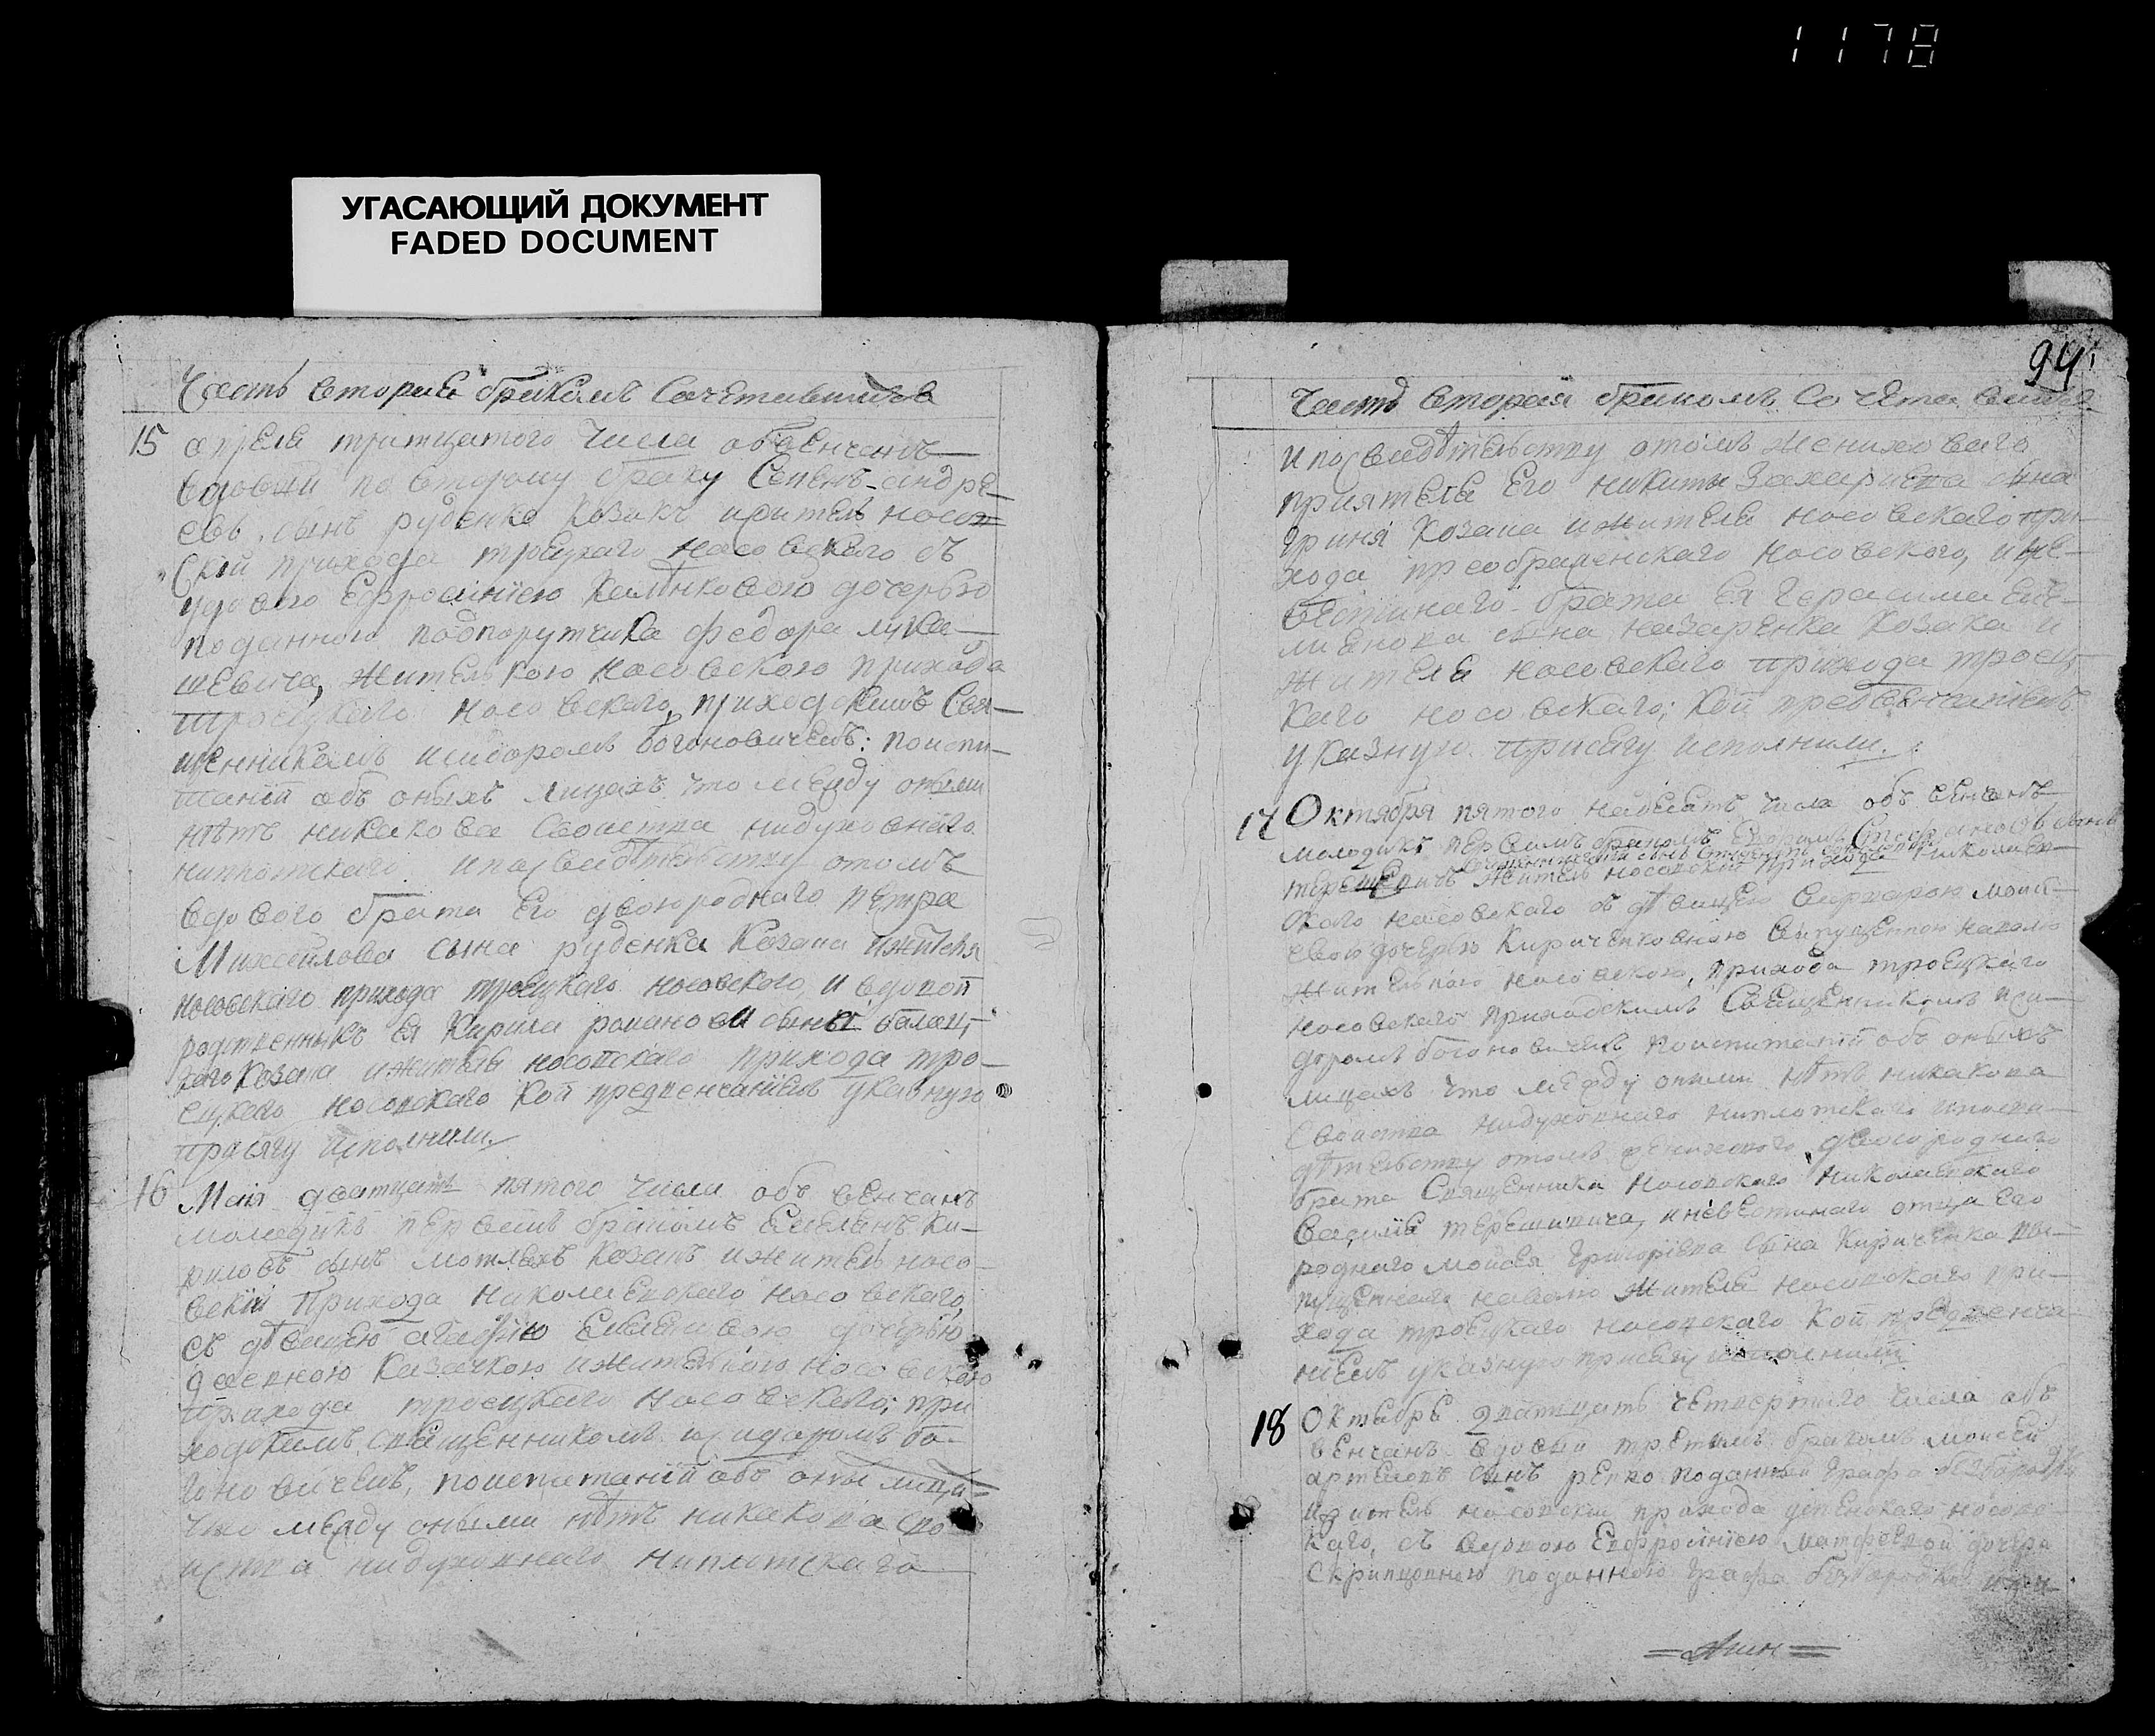 1178
УГАСАЮЩИЙ ДОКУМЕНТ
FADED DOCUMENT
94
Часть вторая бракомъ Сочетавшихся
15 апреля тритцатого числа обвенчанъ
вдовый по второму браку Семенъ андре-
евъ сынъ руденко козакъ житель носов
ской прихода троецкаго носовского съ
удовою Ефросинїею дочерью
поданною подпорутчика федора лука-
шевича, жителькою носовского прихода
троецкаго носовскаго приходскимъ Свя-
щенникомъ исидоромъ богоновичемъ: поиспи-
танїи объ оныхъ лицахъ что между оными
нѣтъ никакова своиства нидуховнаго
ниплотскаго ипосвидѣтельству отомъ
вдового брата Его двоюроднаго петра
Михаилова сына руденка козака ижителя
носовскаго прихода троецкаго носовского, и вдовой
родственникъ ея Кирила романова сына
козака ижителя носовскаго прихода тро-
ецкого носовскаго кои предвенчанїемъ указную
присягу исполнили.
16 Маїя дватцать пятого числа объ венчанъ
молодикъ первымъ бракомъ Емелянъ Ки-
риловъ сынъ козакъ ижитель носо-
вскїй прихода николаевскаго носовскаго,
съ дѣвицею агафїею дочерью
козачкою ижителькою носовскою
прихода троецкаго носовскаго; при
ходскимъ священникомъ исидоромъ бо-
гоновичемъ, поиспитанїи объ оны лица
что между оными нѣтъ никакова сво
иства нидуховнаго ниплотскаго
Часть вторая бракомъ Сочетавшихся
ипосвидѣтельству отомъ женихового
приятеля Его никиты Захариева сына
гриня козака ижителя носовскаго при-
хода преображенскаго носовского, и не-
вестинаго брата Ея Герасима
сына назаренка козака и
жителя носовскаго прихода троец
каго носовскаго; кои предвенчанїемъ
указную присягу исполнили.
17 Октября пятого надесать числа объ венчанъ
молодикъ первымъ бракомъ Стефановъ сынъ
терешевичъ житель носовский прихода николаев-
ского носовскаго съ дѣвицею варварою моисе-
евою дочерью Кириченковною випущенною наволю
жителькою носовскою, прихода троецкаго
носовскаго приходскимъ Священникомъ иси-
доромъ богоновичемъ поиспитанїи объ оныхъ
лицахъ что между оными нѣтъ никакова
своиства нидуховнаго ниплотскаго ипосви-
дѣтельству отомъ женихового двоюроднаго
брата Священника носовского николаевскаго
Василїя терешевича, иневестинаго отца Ево
роднаго моисея григорїева сына Кириченка ви-
пущеннаго наволю жителя носовскаго при-
хода троецкаго носовскаго кои предвенча
нїемъ указную присягу исполнили
18 Октября дватцать четвертого числа объ
венчанъ вдовый третимъ бракомъ моисей
артемовъ сынъ репко поданный графа безбородка
житель носовский прихода успенскаго носовс
каго, съ вдовою Ефросинїею матфеевой дочерю
Скрипцовною поданною графа безбородка